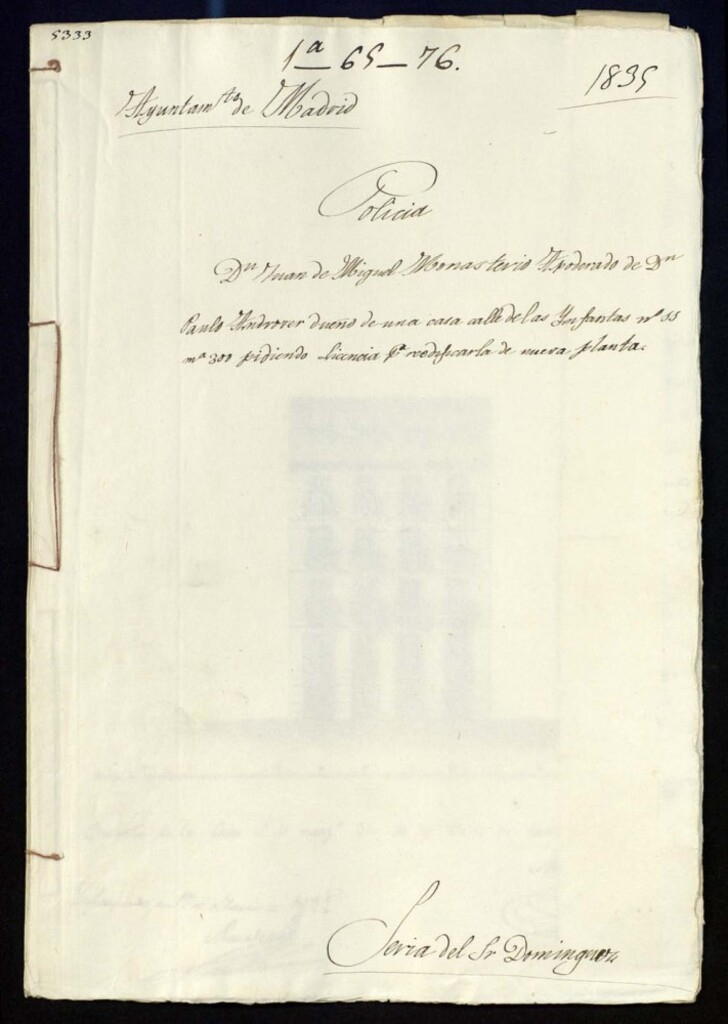 5333
1ª—65—76.
1835
Ayuntam.to de Madrid
Policia
Dn Juan de Miguel Monasterio Apoderado de Dn
Paulo Androver dueño de una casa calle de las Ynfantas nº 55
mª 300 pidiendo licencia pª redificarla de nueva planta.
Sria del Sr Dominguez